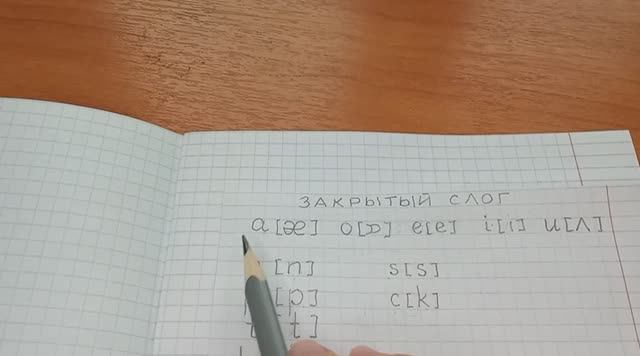 ЗАКРЫТЫЙ СЛОГ
a [æ] o [ɒ] e [e] i [ı] u [ʌ]
[n] s [s]
[p] c [k]
t [t]